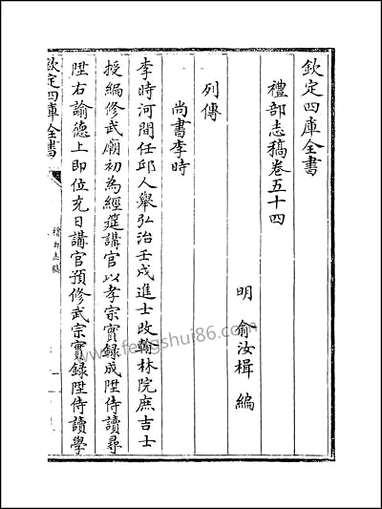 欽定四庫全書
禮部志稿卷五十四
明 俞汝楫 編
列傳
尚書李時
李時河間任邱人舉弘治壬戌進士改翰林院庶吉士
授編修武廟初為經筵講官以孝宗實録成陞侍讀尋
陞右諭德上即位充日講官預修武宗實録陞侍讀學
欽定四庫全書
禮部志稿
www.fengshui86.com